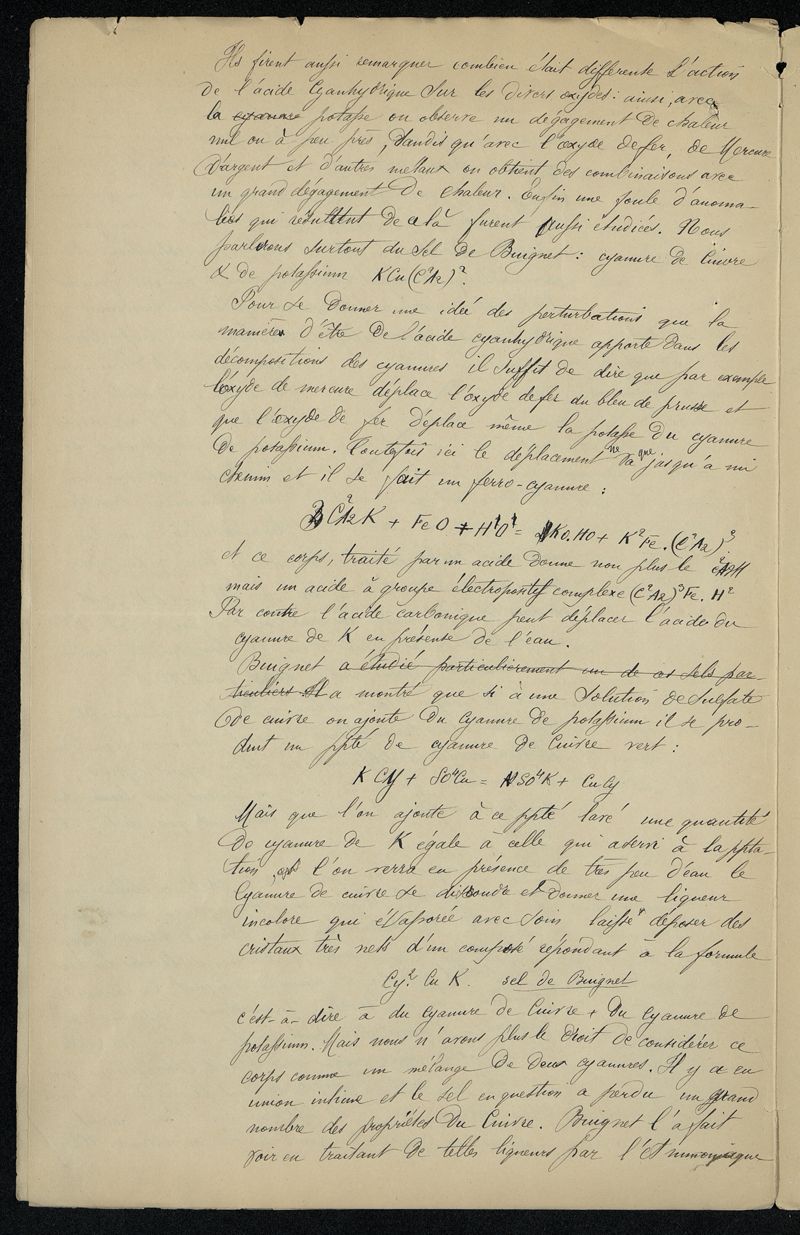 Ils firent aussi remarquer combien était différente l'action
de l'acide Cyanhydrique sur les divers oxydes : ainsi, avec
la cyanure potasse on observe un dégagement de chaleur
nul ou à peu près, tandis qu'avec l'oxyde de fer, de Mercure
d'argent et d'autres métaux on obtient des combinaisons avec
un grand dégagement de chaleur. Enfin une foule d'anoma-
lies qui résultent de là furent aussi étudiées. Nous
parlerons surtout du Sel de Buignet : cyanure de Cuivre
& de potassium KCu(C²Az)².
Pour se donner une idée des perturbations que la
manière d'être de l'acide cyanhydrique apporte dans les
décompositions des cyanures il suffit de dire que par exemple
l'oxyde de mercure déplace l'oxyde de fer du bleu de prusse et
que l'oxyde de fer déplace même la potasse du cyanure
de potassium. Toutefois ici le déplacement ne va que jusqu'à mi
chemin et il se fait un ferro-cyanure :
3C²AzK + FeO + H²O² = KO.HO + K²Fe.(C²Az)³.
et ce corps, traité par un acide donne non plus le C²AzH
mais un acide à groupe électropositif complexe (C²Az)³Fe.H²
Par contre l'acide carbonique peut déplacer l'acide du
cyanure de K en présence de l'eau.
Buignet a étudié particulièrement un de ces sels par-
ticuliers. Il a montré que si à une solution de Sulfate
de cuivre on ajoute du Cyanure de potassium il se pro-
duit un ppté de cyanure de Cuivre vert :
KCy + SO⁴Cu = SO⁴K + CuCy
Mais que l'on ajoute à ce ppté lavé une quantité
de cyanure de K égale à celle qui a servi à la ppta-
tion, l'on verra en présence de très peu d'eau le
Cyanure de cuivre se dissoudre et donner une liqueur
incolore qui évaporée avec soin laisse déposer des
cristaux très nets d'un composé répondant à la formule
Cy². Cu K. sel de Buignet
c'est-à-dire à du cyanure de Cuivre + du Cyanure de
potassium. Mais nous n'avons plus le droit de considérer ce
corps comme un mélange de deux cyanures. Il y a eu
union intime et le sel en question a perdu un grand
nombre des propriétés du Cuivre. Buignet l'a fait
voir en traitant de telles liqueurs par l'Ammoniaque